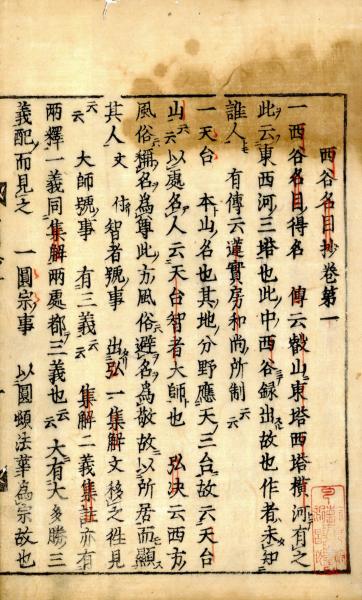 西谷名目抄卷第一
一西谷名目得名　傳云叡山東塔西塔横河有之
此云東西河三塔也此中西谷録出故也作者未知
誰人　有傳云蓮實房和尚所制云云
一天台　本山名也其地分野應天三台故云天台
山云云以處名人云天台智者大師也　弘決云西方
風俗稱名為尊此方風俗避名為敬故以所居而顯
其人文　付智者號事　出弘一集解文移之往見
云云　大師號事　有三義云云　集解二義集註亦有
兩釋一義同集解兩處都三義也云云　大有大多勝三
義配而見之　一圓宗事　以圓頓法華為宗故也